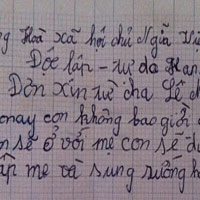 Hoà xã hội chủ Nghĩa Việ
Độc lập - tự do Han
Đơn xin từ cha Lê
nay con không bao giờ
sẽ ở với mẹ con sẽ
mẹ và sung sướng h